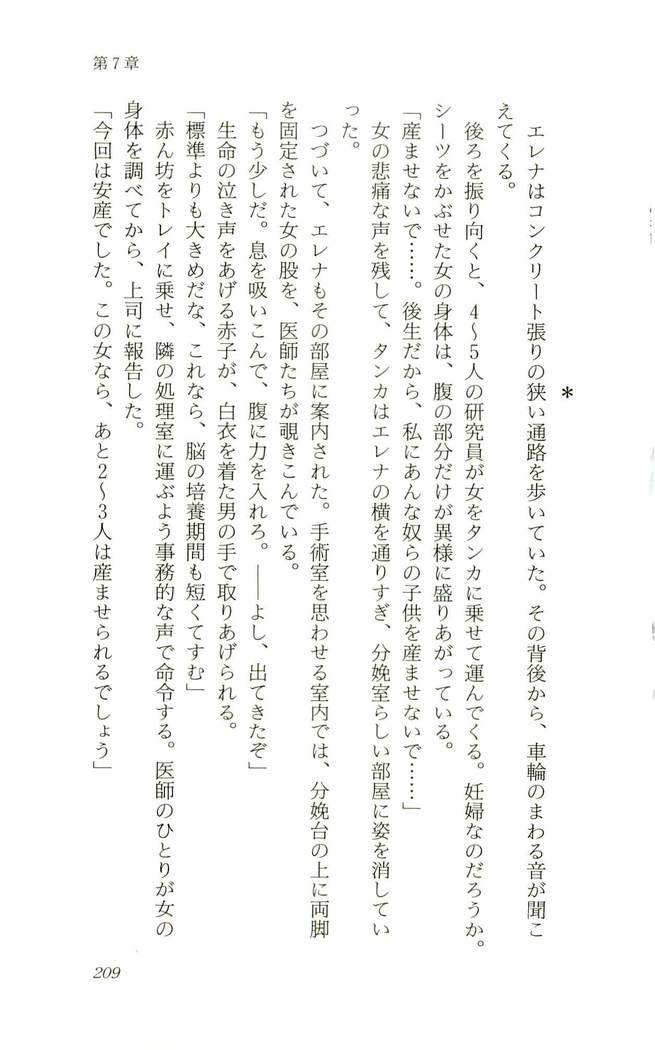 第7章
＊
　エレナはコンクリート張りの狭い通路を歩いていた。その背後から、車輪のまわる音が聞こ
えてくる。
　後ろを振り向くと、4〜5人の研究員が女をタンカに乗せて運んでくる。妊婦なのだろうか。
シーツをかぶせた女の身体は、腹の部分だけが異様に盛りあがっている。
「産ませないで……。後生だから、私にあんな奴らの子供を産ませないで……」
　女の悲痛な声を残して、タンカはエレナの横を通りすぎ、分娩室らしい部屋に姿を消してい
った。
　つづいて、エレナもその部屋に案内された。手術室を思わせる室内では、分娩台の上に両脚
を固定された女の股を、医師たちが覗きこんでいる。
「もう少しだ。息を吸いこんで、腹に力を入れろ。――よし、出てきたぞ」
　生命の泣き声をあげる赤子が、白衣を着た男の手で取りあげられる。
「標準よりも大きめだな、これなら、脳の培養期間も短くてすむ」
　赤ん坊をトレイに乗せ、隣の処理室に運ぶよう事務的な声で命令する。医師のひとりが女の
身体を調べてから、上司に報告した。
「今回は安産でした。この女なら、あと2〜3人は産ませられるでしょう」
209